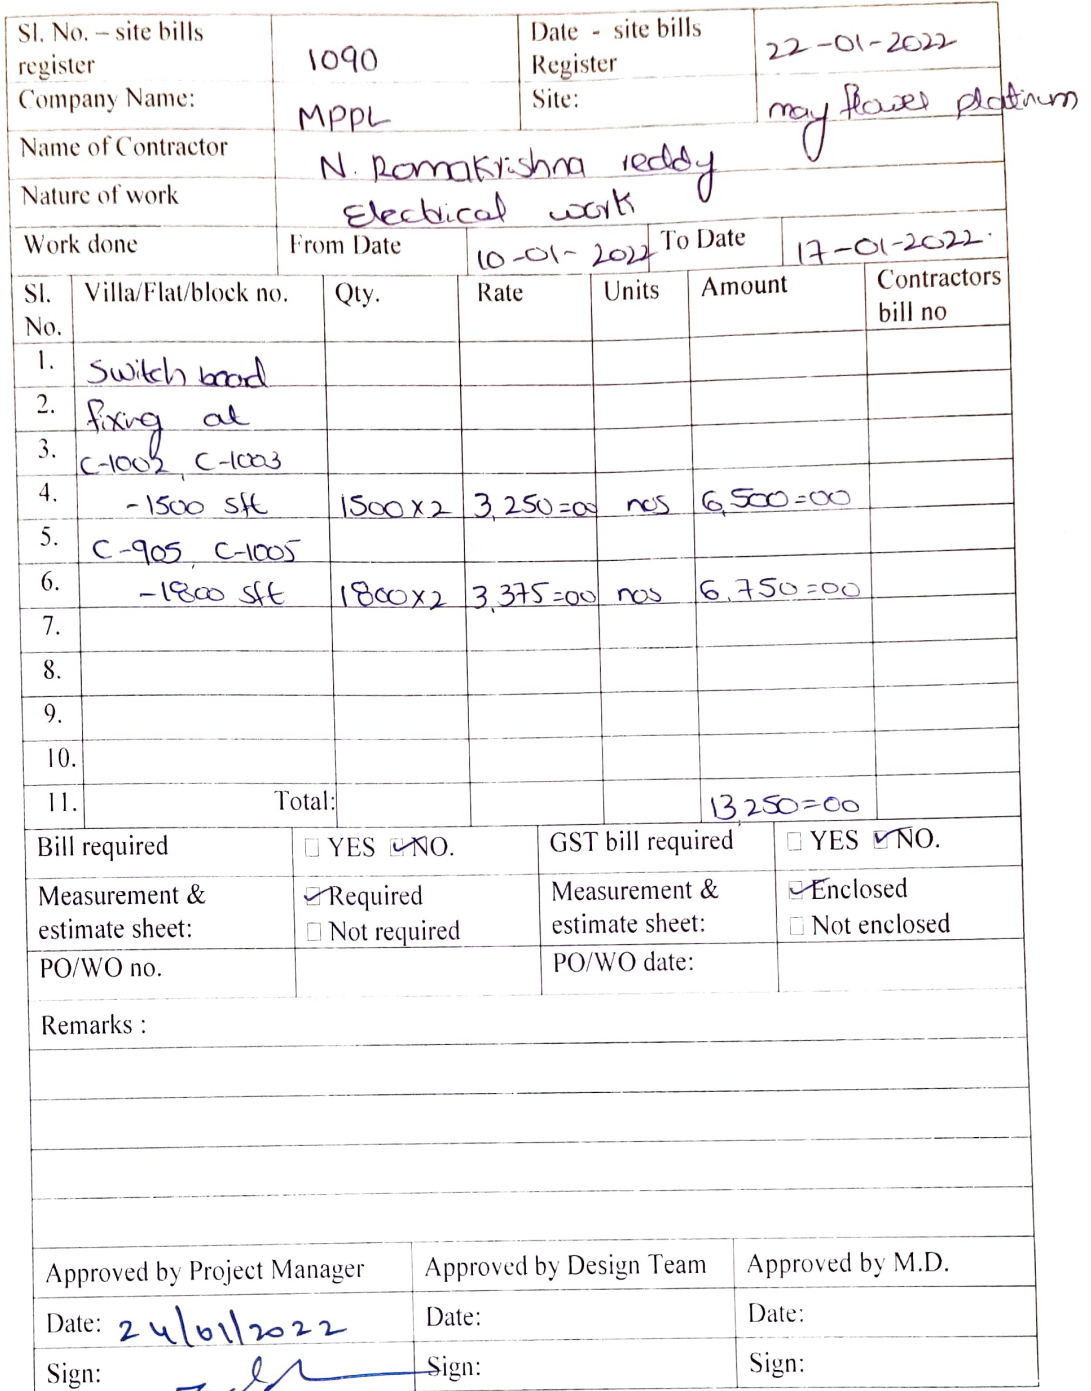 Sl. No. – site bills register 1090 Date - site bills Register 22-01-2022
Company Name: MPPL Site: may flower platinum
Name of Contractor N. Ramakrishna reddy
Nature of work Electrical work
Work done From Date 10-01-2022 To Date 17-01-2022.
Sl. No. Villa/Flat/block no. Qty. Rate Units Amount Contractors bill no
1. Switch board
2. fixing at
3. C-1002, C-1003
4. -1500 sft 1500X2 3,250=00 nos 6,500=00
5. C-905, C-1005
6. -1800 sft 1800X2 3,375=00 nos 6,750=00
7.
8.
9.
10.
11. Total: 13,250=00
Bill required YES NO. GST bill required YES NO.
Measurement & estimate sheet: Required Not required Measurement & estimate sheet: Enclosed Not enclosed
PO/WO no. PO/WO date:
Remarks :
Approved by Project Manager Approved by Design Team Approved by M.D.
Date: 24/01/2022 Date: Date:
Sign: Sign: Sign: